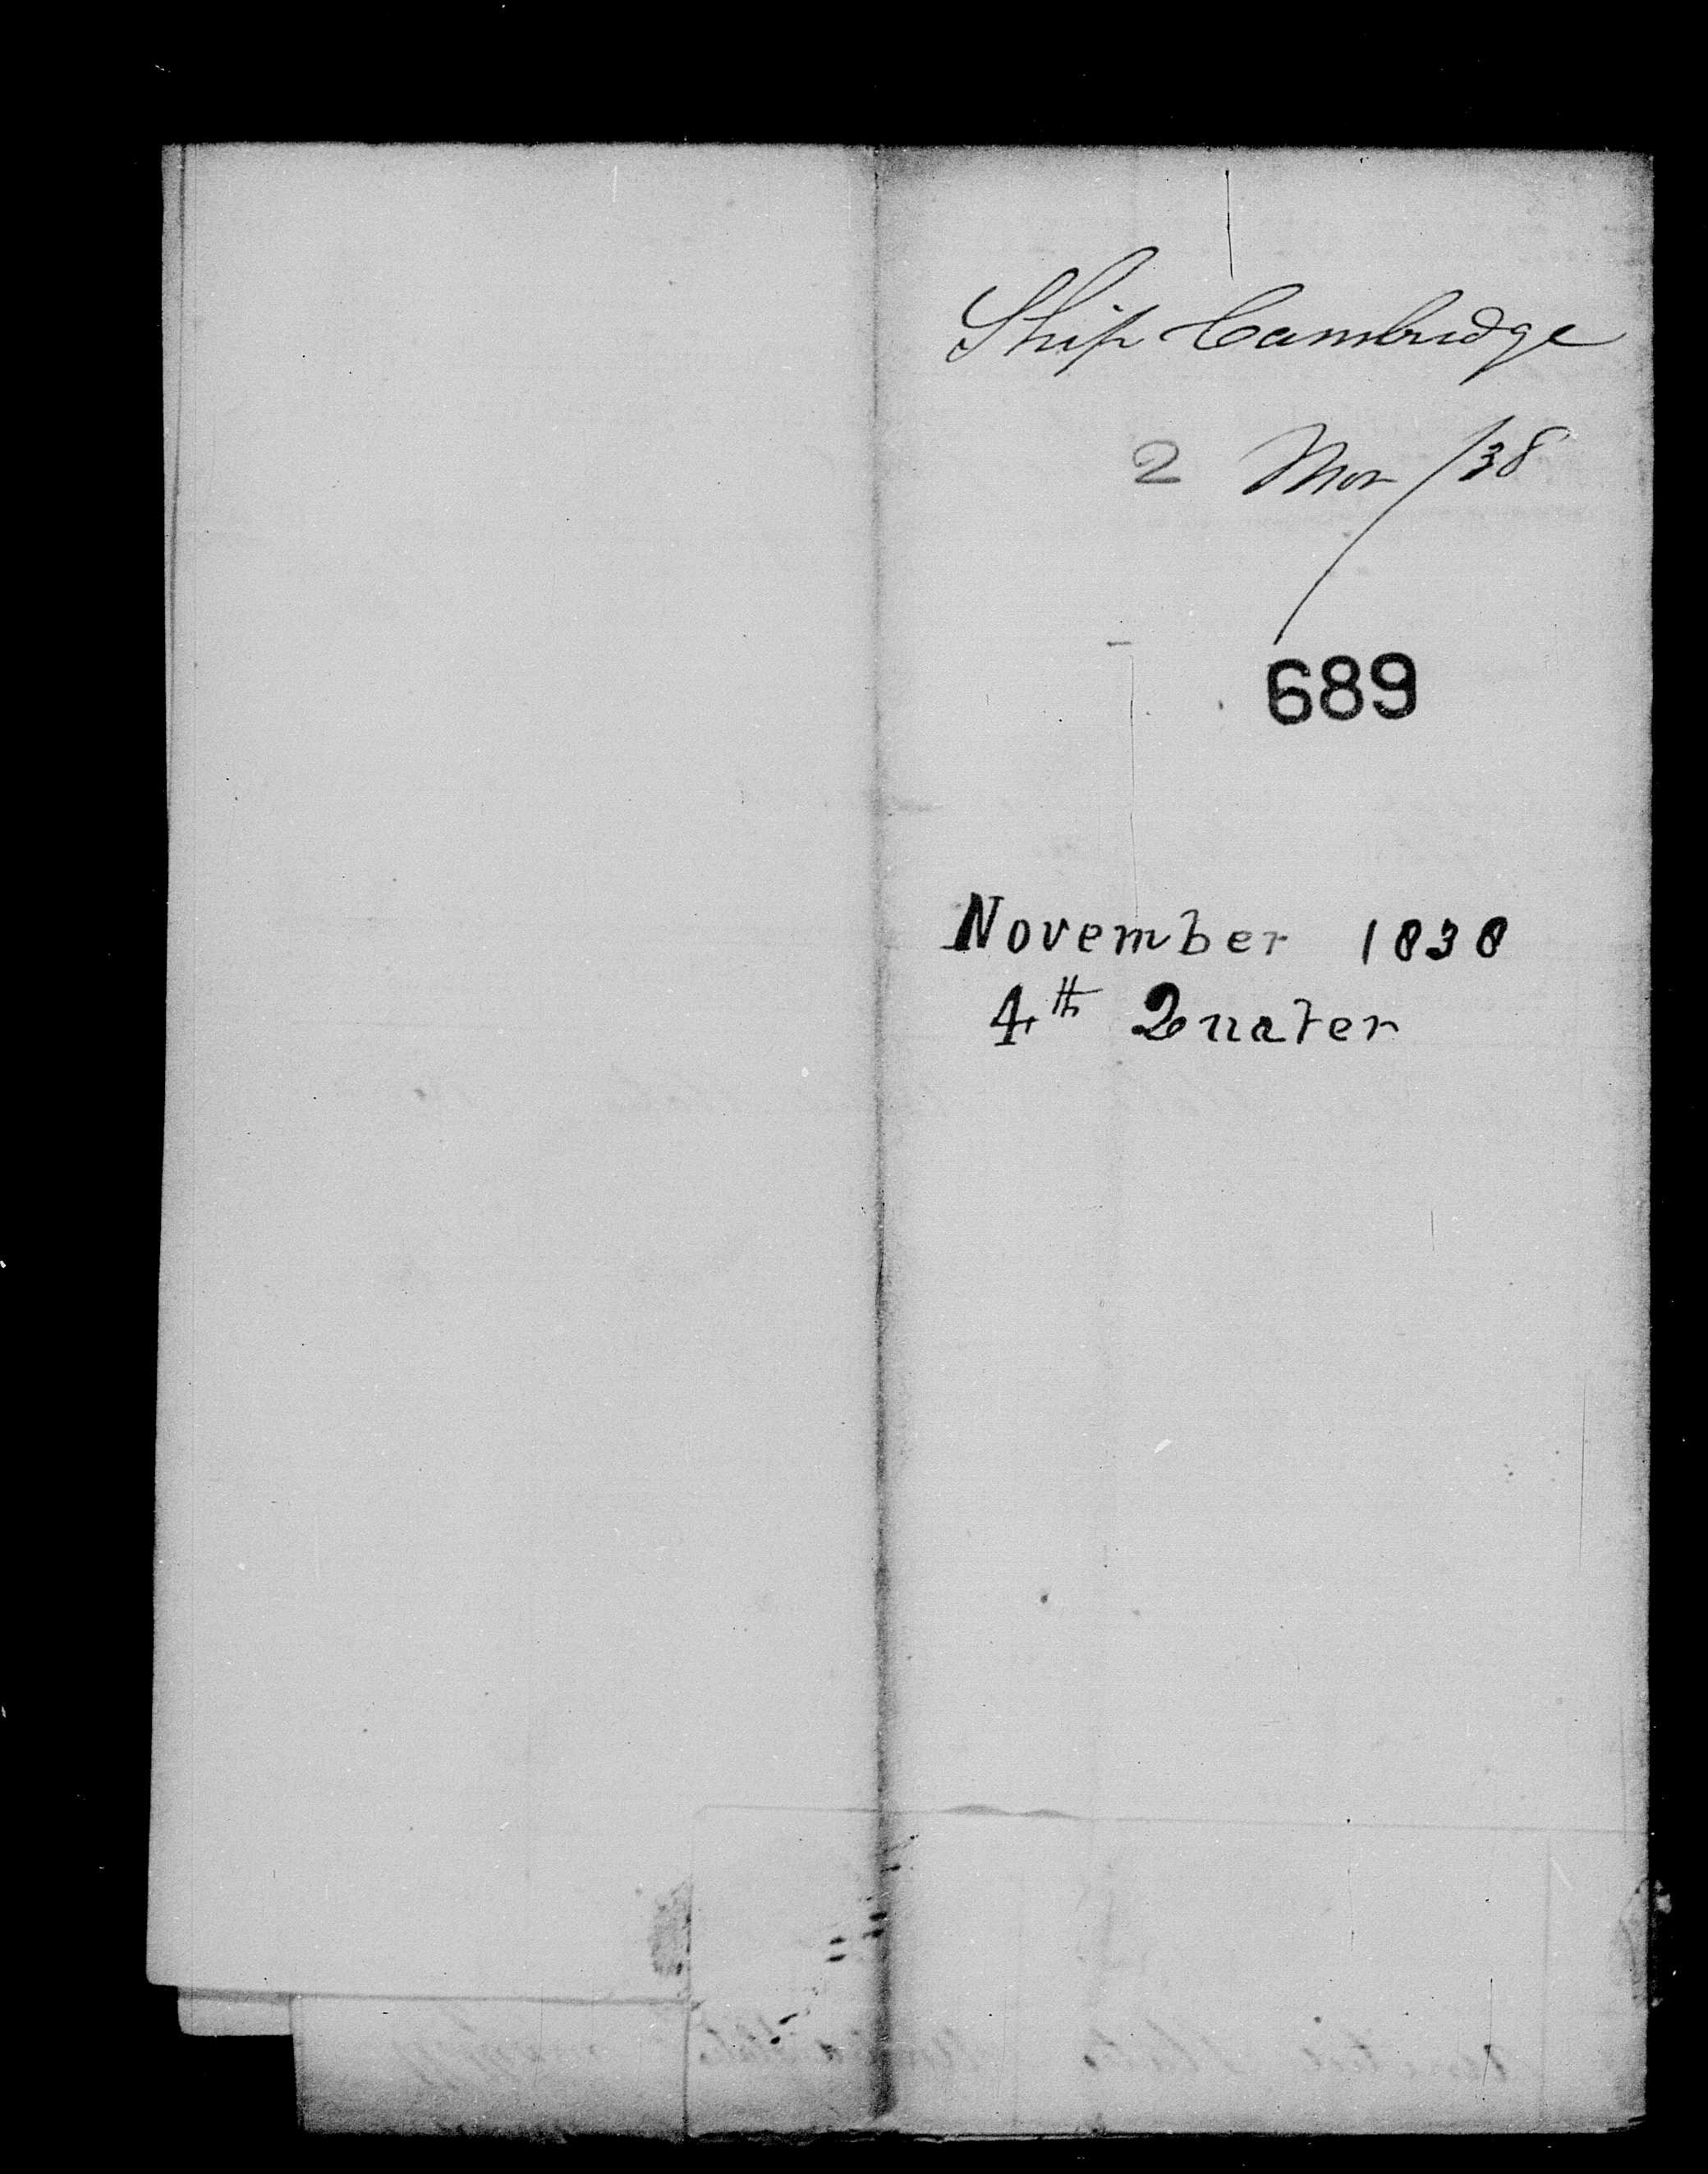 Ship Cambridge
2 Nov /38
689
November 1838
4th Quater